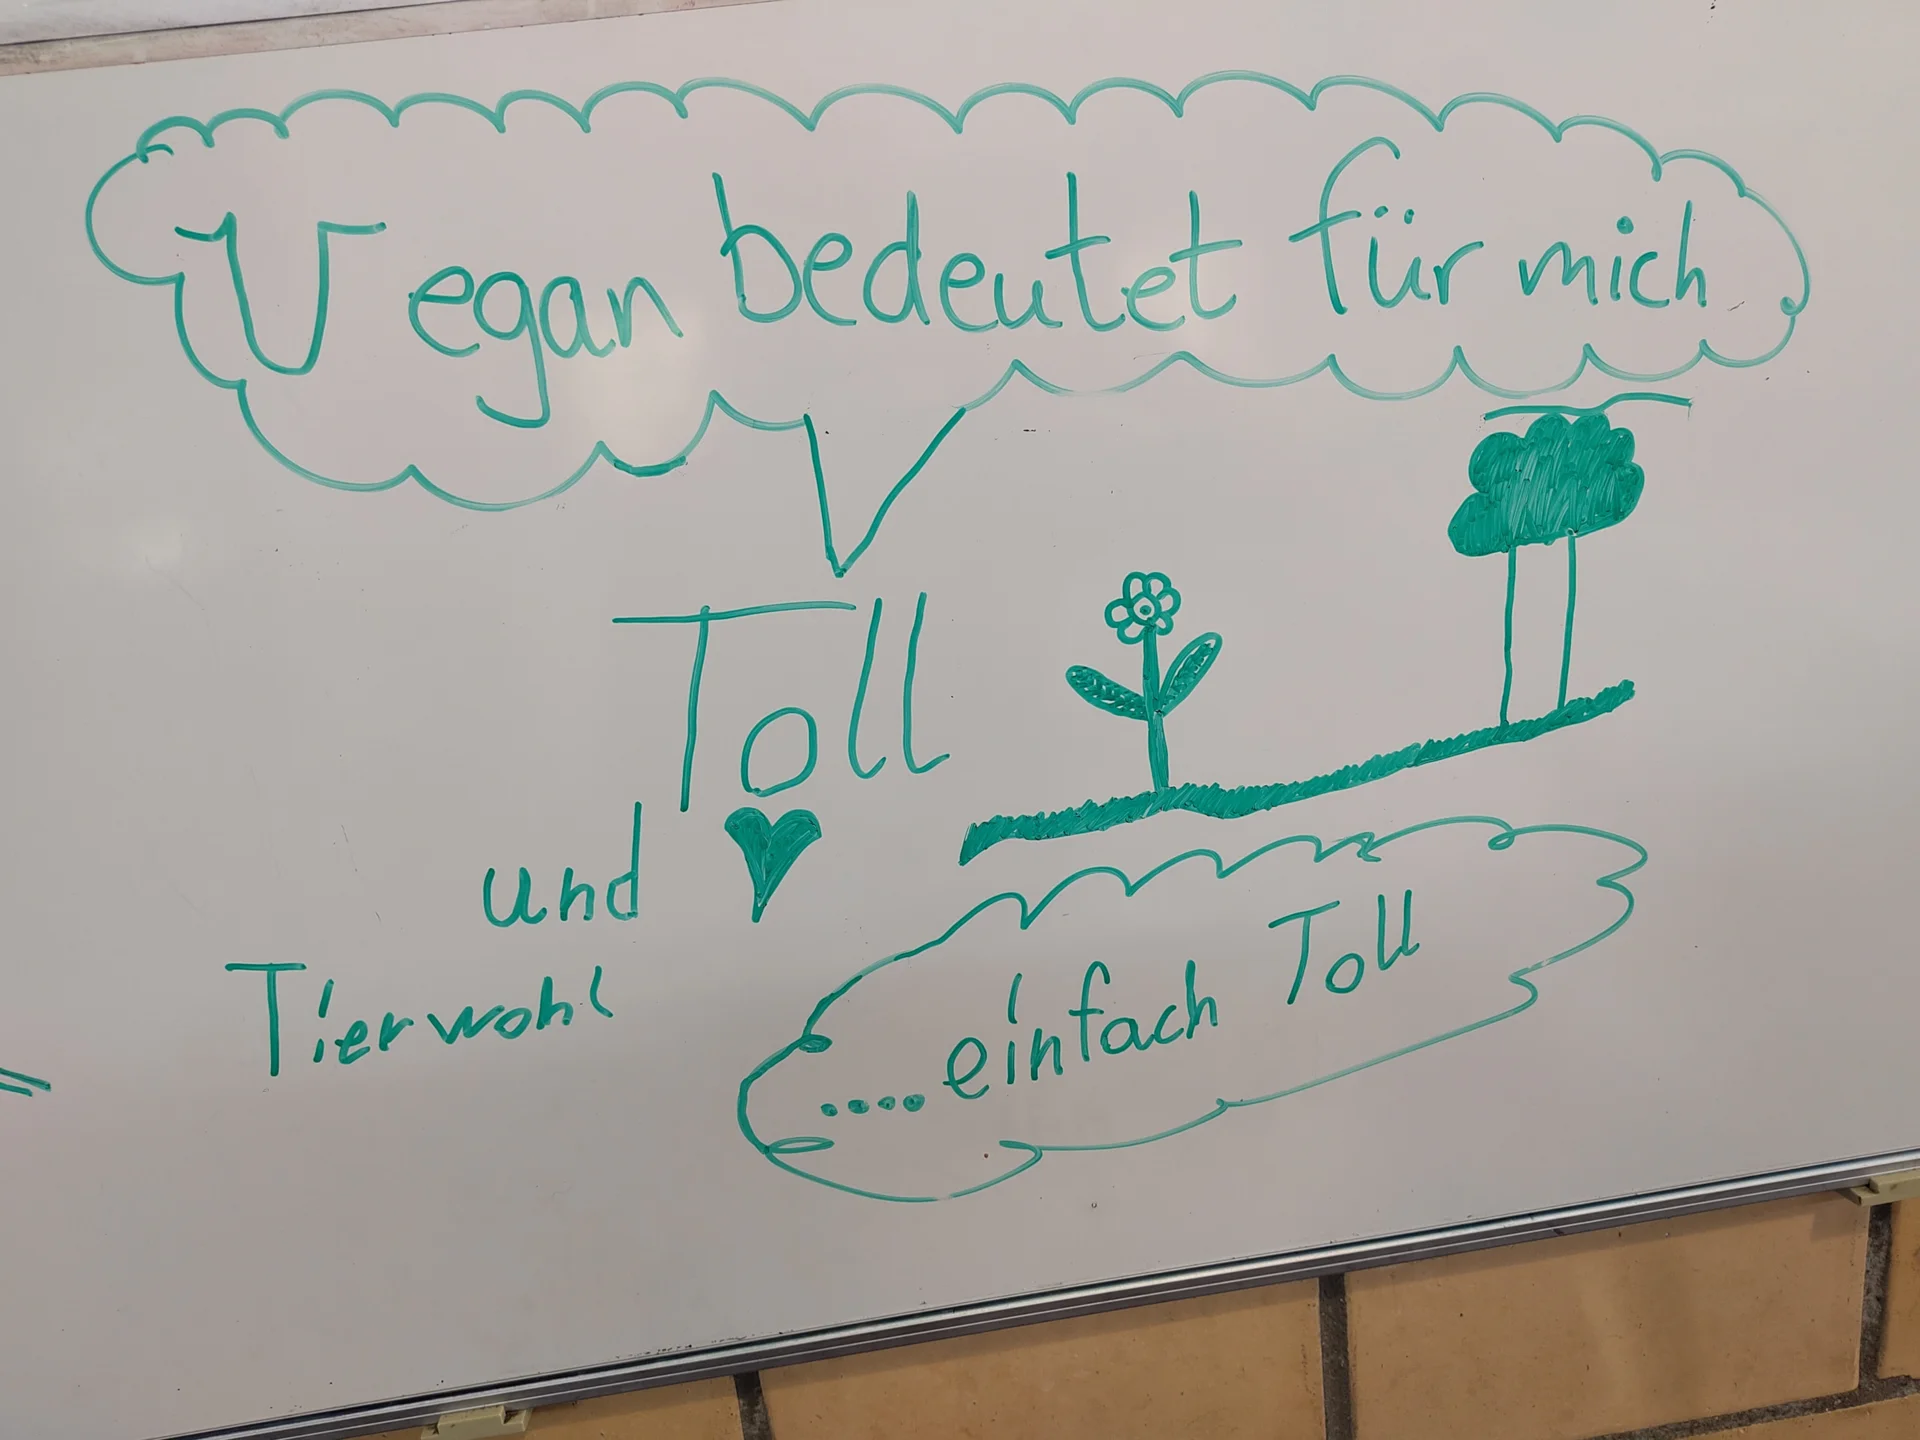 Vegan bedeutet für mich
Toll
und
Tierwohl
.... einfach Toll